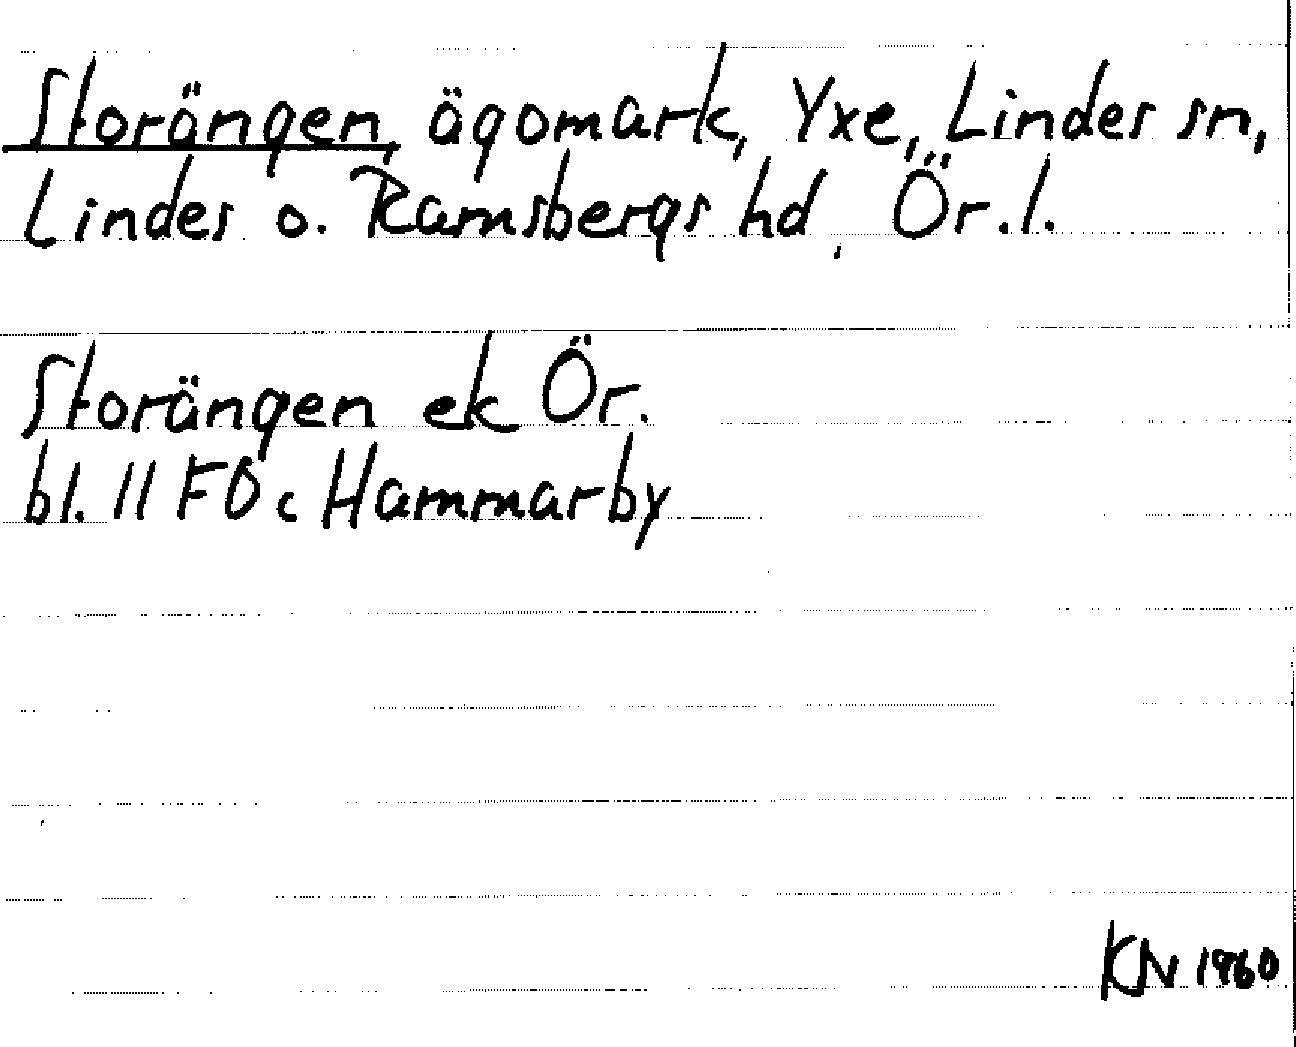 Storängen, ägomark, Yxe, Lindes sn,
Lindes o. Ramsbergs hd, Ör.l.
Storängen ek Ör.
bl. 11 F0c Hammarby
KN 1960